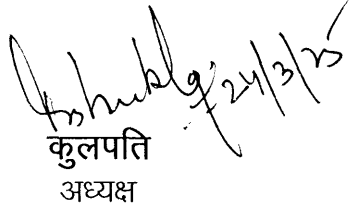 24/3/25
कुलपति
अध्यक्ष